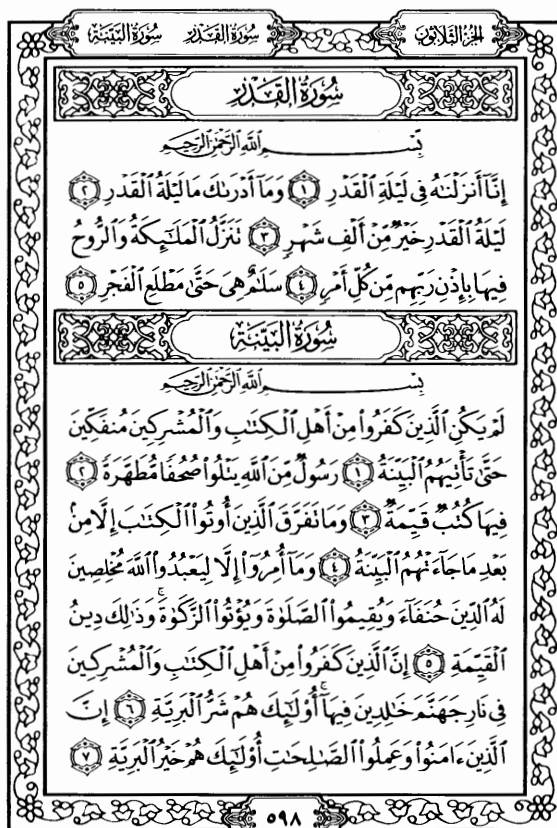 سُورَةُ البَيِّنَة سُورَةُ القَدْر الجُزْءُ الثَّلَاثُونَ
سُورَةُ القَدْرِ
بِسْمِ اللَّهِ الرَّحْمَٰنِ الرَّحِيمِ
إِنَّآ أَنزَلْنَٰهُ فِى لَيْلَةِ ٱلْقَدْرِ ١ وَمَآ أَدْرَىٰكَ مَا لَيْلَةُ ٱلْقَدْرِ ٢
لَيْلَةُ ٱلْقَدْرِ خَيْرٌ مِّنْ أَلْفِ شَهْرٍ ٣ تَنَزَّلُ ٱلْمَلَٰٓئِكَةُ وَٱلرُّوحُ
فِيهَا بِإِذْنِ رَبِّهِم مِّن كُلِّ أَمْرٍ ٤ سَلَٰمٌ هِىَ حَتَّىٰ مَطْلَعِ ٱلْفَجْرِ ٥
سُورَةُ البَيِّنَةِ
بِسْمِ اللَّهِ الرَّحْمَٰنِ الرَّحِيمِ
لَمْ يَكُنِ ٱلَّذِينَ كَفَرُوا۟ مِنْ أَهْلِ ٱلْكِتَٰبِ وَٱلْمُشْرِكِينَ مُنفَكِّينَ
حَتَّىٰ تَأْتِيَهُمُ ٱلْبَيِّنَةُ ١ رَسُولٌ مِّنَ ٱللَّهِ يَتْلُوا۟ صُحُفًا مُّطَهَّرَةً ٢
فِيهَا كُتُبٌ قَيِّمَةٌ ٣ وَمَا تَفَرَّقَ ٱلَّذِينَ أُوتُوا۟ ٱلْكِتَٰبَ إِلَّا مِنۢ
بَعْدِ مَا جَآءَتْهُمُ ٱلْبَيِّنَةُ ٤ وَمَآ أُمِرُوٓا۟ إِلَّا لِيَعْبُدُوا۟ ٱللَّهَ مُخْلِصِينَ
لَهُ ٱلدِّينَ حُنَفَآءَ وَيُقِيمُوا۟ ٱلصَّلَوٰةَ وَيُؤْتُوا۟ ٱلزَّكَوٰةَ ۚ وَذَٰلِكَ دِينُ
ٱلْقَيِّمَةِ ٥ إِنَّ ٱلَّذِينَ كَفَرُوا۟ مِنْ أَهْلِ ٱلْكِتَٰبِ وَٱلْمُشْرِكِينَ
فِى نَارِ جَهَنَّمَ خَٰلِدِينَ فِيهَآ ۚ أُو۟لَٰٓئِكَ هُمْ شَرُّ ٱلْبَرِيَّةِ ٦ إِنَّ
ٱلَّذِينَ ءَامَنُوا۟ وَعَمِلُوا۟ ٱلصَّٰلِحَٰتِ أُو۟لَٰٓئِكَ هُمْ خَيْرُ ٱلْبَرِيَّةِ ٧
٥٩٨